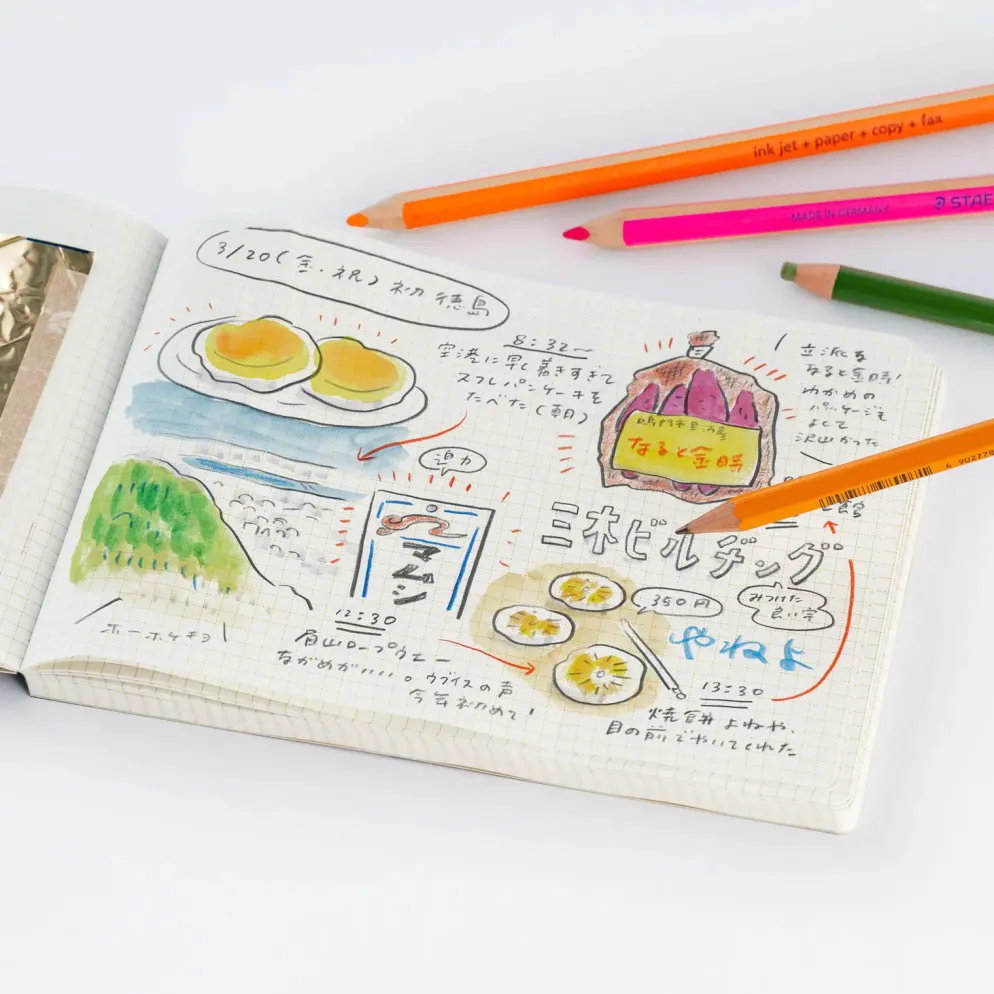 ink jet + paper + copy + fax
MADE IN GERMANY
STAE
3/20(金・祝) 初 徳島
8:32〜
空港に早く着きすぎて
スフレパンケーキを
たべた(朝)
立派な
なると金時!
わかめの
パッケージも
よくて
沢山かった
鳴門市里浦産
なると金時
迫力
マムシ
三木ビルヂング
4 902778
館
ホーホケキョ
12:30
眉山ロープウェー
ながめが.....。ウグイスの声
今年初めて!
350円
みつけた
良い字
やねよ
13:30
焼餅 よねや、
目の前でやいてくれた